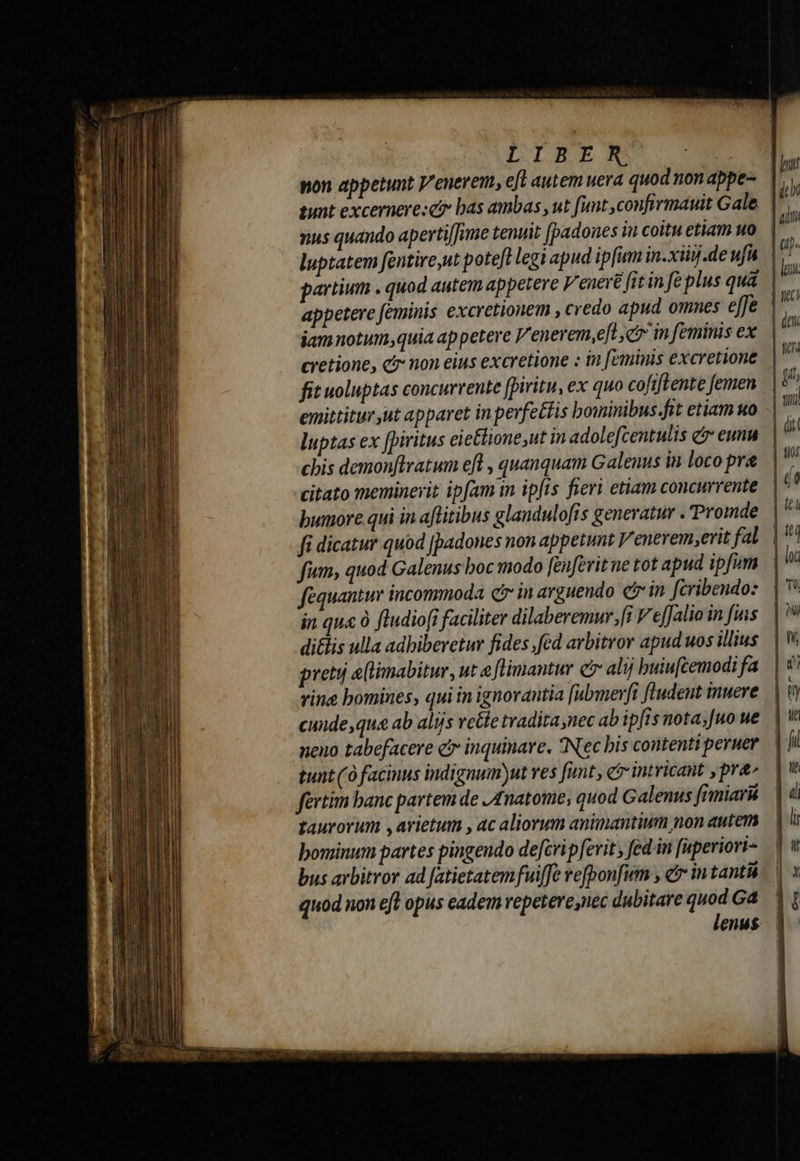 LIBER
non appetunt Venerem, eſt autem uera quod non appe-
tunt excernere: & has ambas, ut ſunt, confirmauit Gale
nus quando apertiſſime tenuit ſpadones in coitu etiam uo
luptatem ſentire, ut poteſt legi apud ipſum in. xiiij. de uſu
partium. quod autem appetere Venerē ſit in ſe plus quā
appetere feminis excretionem, credo apud omnes eſſe
iam notum, quia appetere Venerem, eſt, & in feminis ex
cretione, & non eius excretione: in feminis excretione
fit uoluptas concurrente ſpiritu, ex quo coſiſtente ſemen
emittitur, ut apparet in perfectis hominibus. fit etiam uo
luptas ex ſpiritus eiectione, ut in adoleſcentulis & eunu
chis demonſtratum eſt, quanquam Galenus in loco præ
citato meminerit ipſam in ipſis fieri etiam concurrente
humore qui in aſtitibus glanduloſis generatur. Proinde
ſi dicatur quòd ſpadones non appetunt Venerem, erit fal
ſum, quod Galenus hoc modo ſenſerit ne tot apud ipſum
ſequantur incommoda & in arguendo & in ſcribendo:
in quæ ò ſtudioſi faciliter dilaberemur, ſi Veſſalio in ſuis
dictis ulla adhiberetur fides, ſed arbitror apud uos illius
pretij æſtimabitur, ut æſtimantur & alij huiuſcemodi fa
rinæ homines, qui in ignorantia ſubmerſi ſtudent inuere
cunde, quæ ab alijs recte tradita, nec ab ipſis nota, ſuo ue
neno tabefacere & inquinare. Nec his contenti peruer
tunt (ò facinus indignum) ut res ſunt, & intricant, præ-
ſertim hanc partem de Anatome, quod Galenus ſimiarū
taurorum, arietum, ac aliorum animantium non autem
hominum partes pingendo deſcripſerit, ſed in ſuperiori-
bus arbitror ad ſatietatem fuiſſe reſponſum, & in tantū
quod non eſt opus eadem repetere, nec dubitare quod Ga
lenus